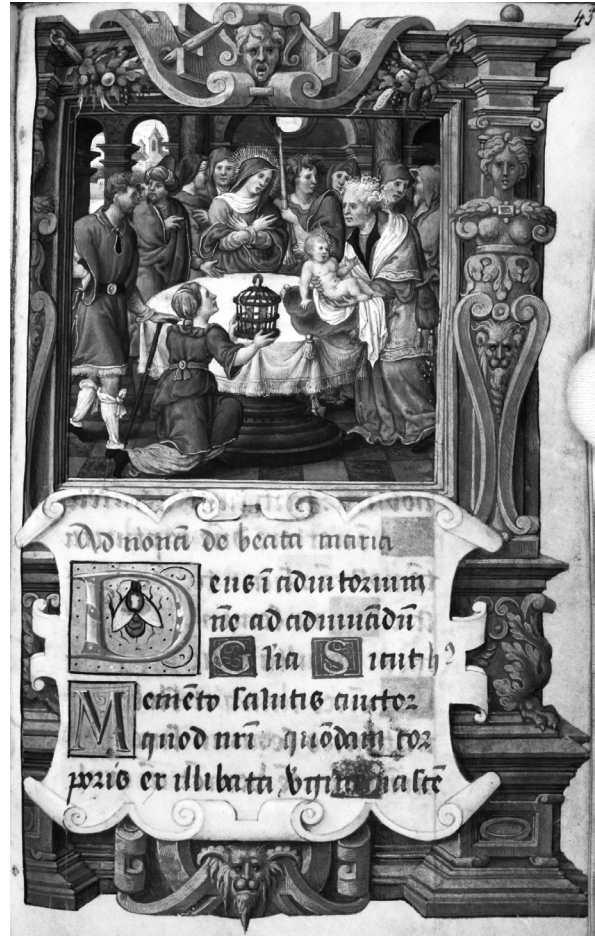 45
Ad nonā de beata maria
Deus ī adiutorium
ne ad adiuuādū
Glia Sicut
Memēto salutis auctor
quod nr̄i quōdam cor
poris ex illibata